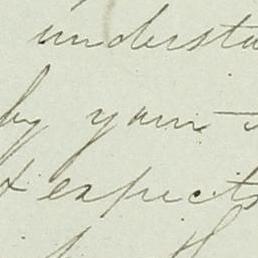 understa
by your
& expects